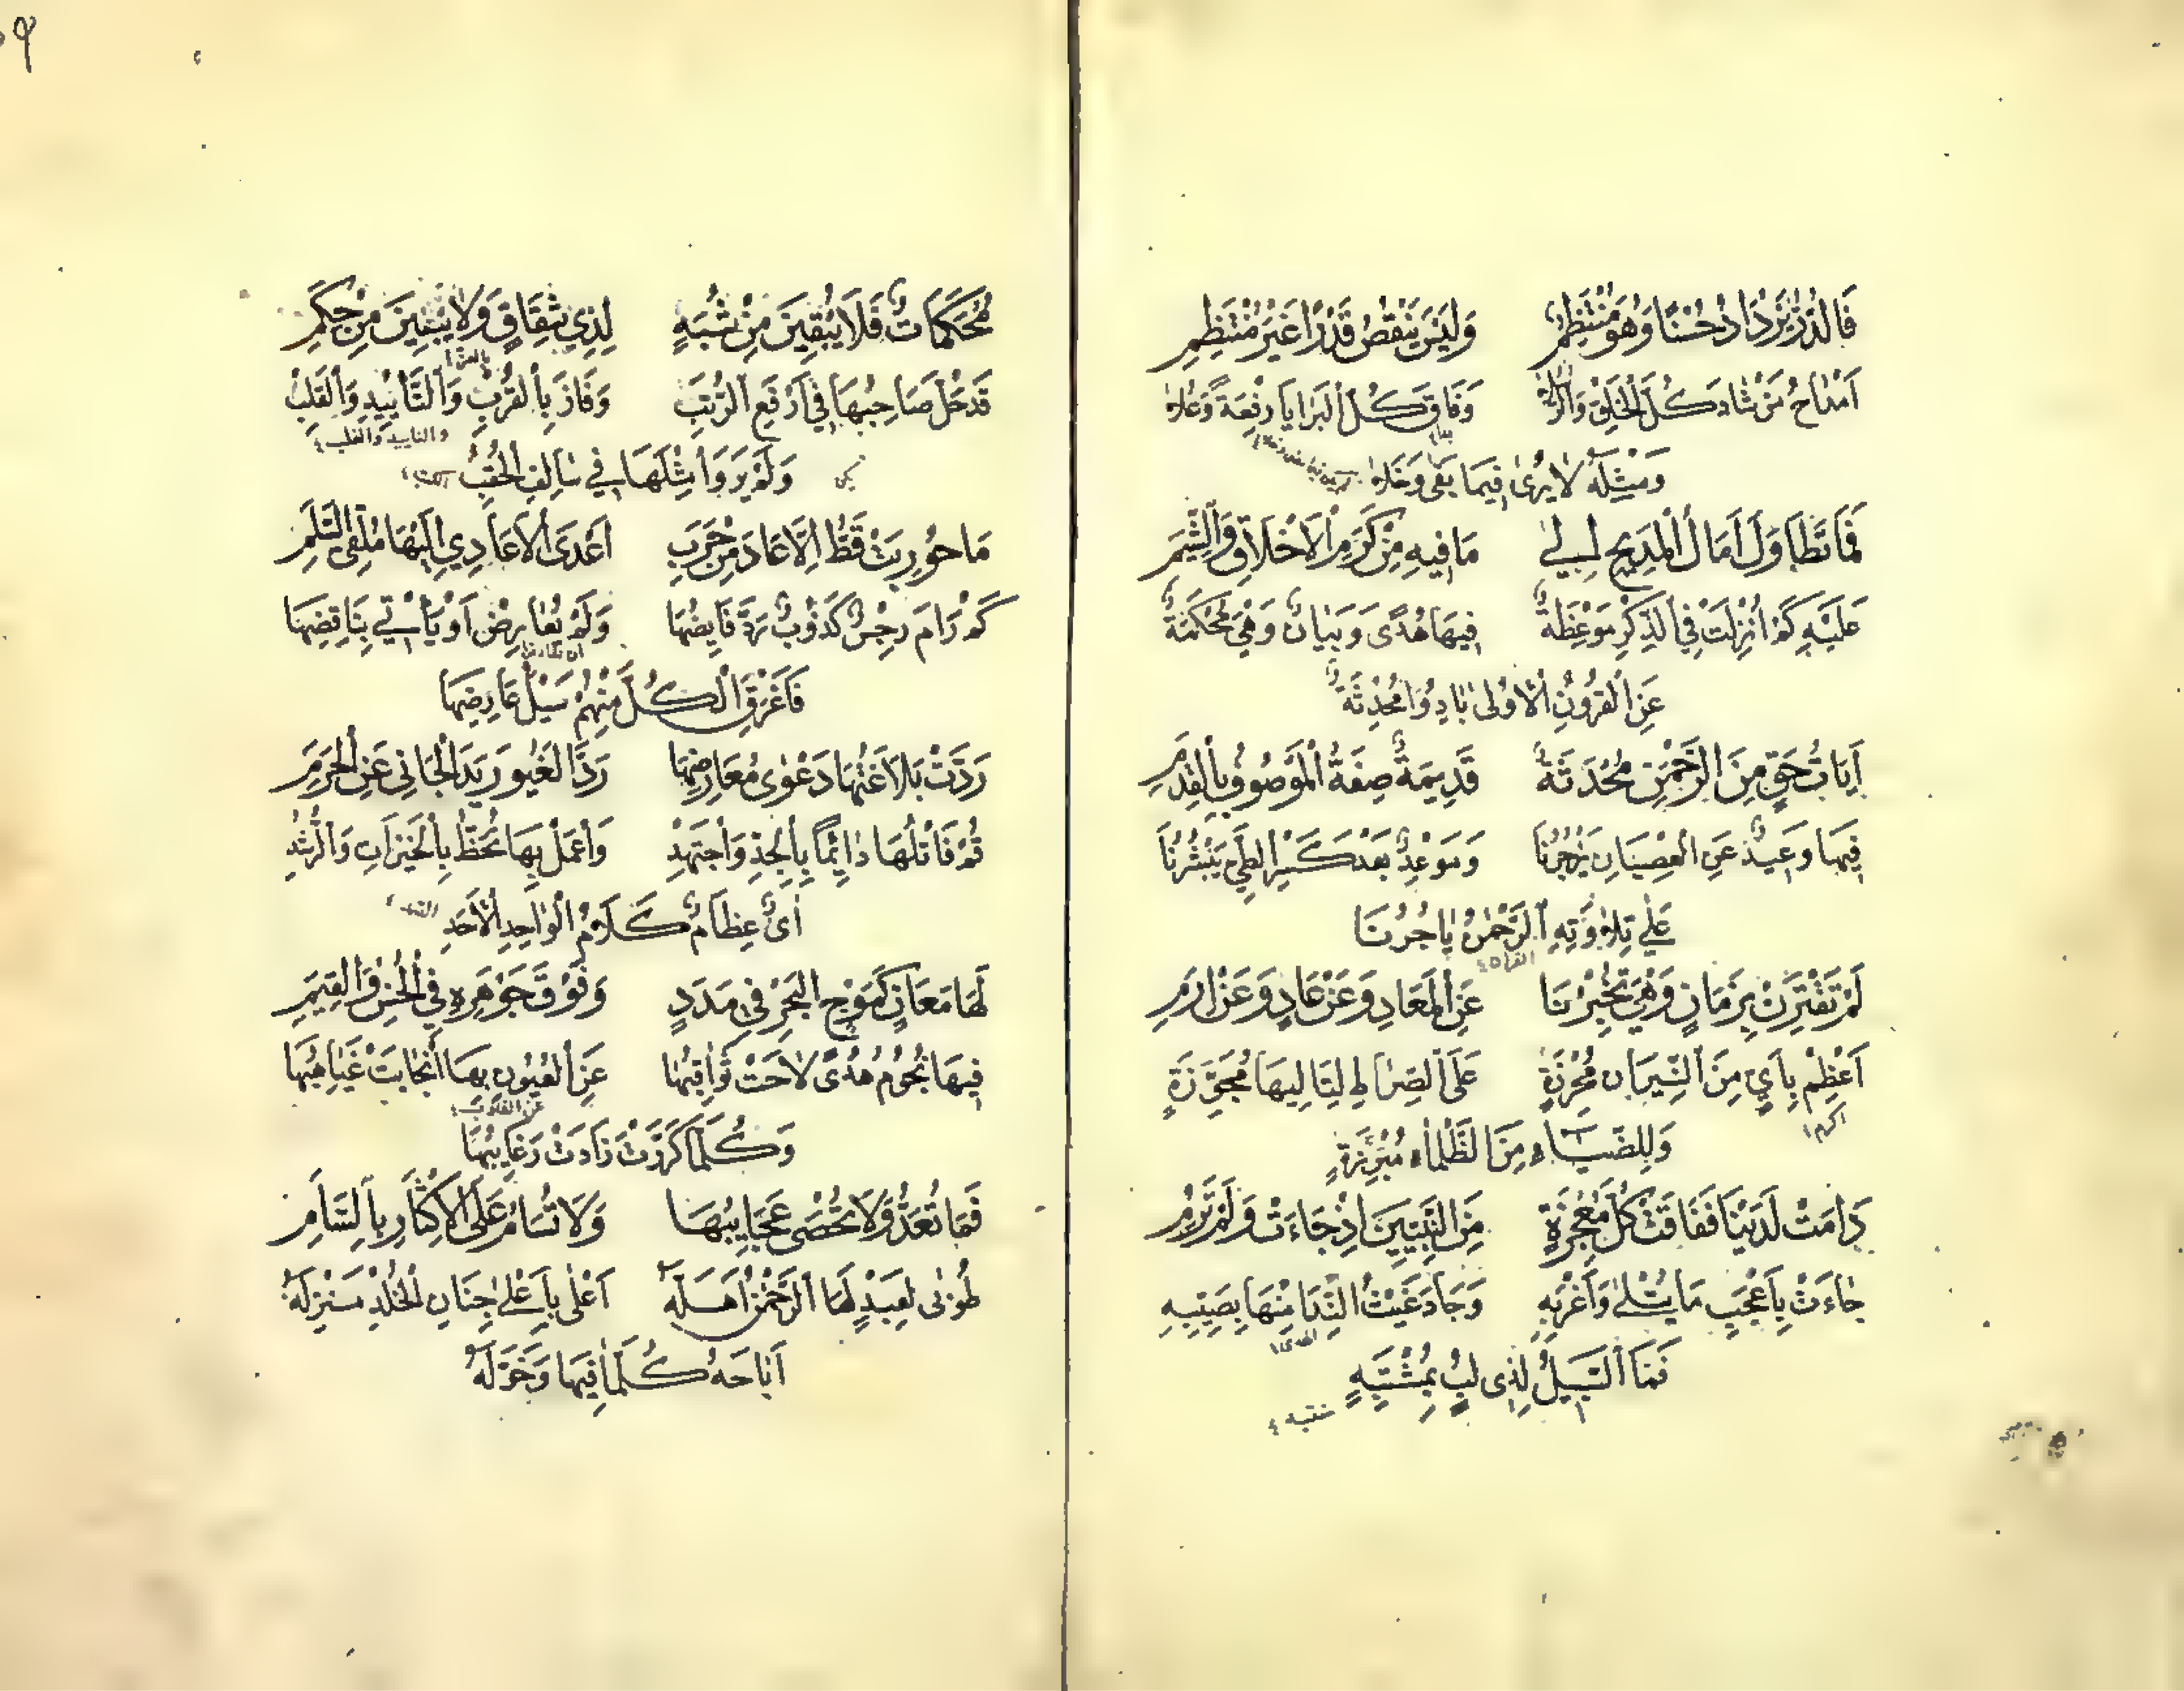 فَالدُّرُّ يَزْدَادُ حُسْنًا وَهُوَ مُنْتَظِمٌ وَلَيْسَ يَنْقُصُ قَدْرًا غَيْرَ مُنْتَظِمِ
اَمْدَاحُ مَنْ شَادَ كُلَّ الْخَلْقِ وَفَاقَ كُلَّ الْبَرَايَا رِفْعَةً وَعُلَاهْ
وَمِثْلُهُ لَا يُرَى فِيمَا بَقَى وَخَلَاهْ
فَمَا تَطَاوَلَ اَمَالُ الْمَدِيحِ اِلَى مَا فِيهِ مِنْ كَرَمِ الْاَخْلَاقِ وَالشِّيَمِ
عَلَيْهِ كَمْ اُنْزِلَتْ فِي الذِّكْرِ مَوْعِظَةٌ فِيهَا هُدًى وَبَيَانٌ وَهْيَ مُحْكَمَةٌ
عَنِ الْقُرُونِ الْاُولَى بَادُوا مُحْدِثَةٌ
اَيَاتُ حَقٍّ مِنَ الرَّحْمٰنِ مُحْدَثَةٌ قَدِيمَةٌ صِفَةُ الْمَوْصُوفِ بِالْقِدَمِ
فِيهَا وَعِيدٌ عَنِ الْعِصْيَانِ يَزْجُرُنَا وَمَوْعِدٌ بَعْدَ كَسْرِ الطَّيِّ يَنْشُرُنَا
عَلَى تِلَاوَتِهِ الرَّحْمٰنُ يَاجُرُنَا
القراة
لَمْ تَقْتَرِنْ بِزَمَانٍ وَهْيَ تُخْبِرُنَا عَنِ الْمَعَادِ وَعَنْ عَادٍ وَعَنْ اِرَمِ
اَعْظِمْ بِاَيٍ مِنَ النِّيرَانِ مُحْرِزَةٍ عَلَى الصِّرَاطِ لِتَالِيهَا مُجَوِّزَةٍ
اكرم
وَلِلضِّيَاءِ مِنَ الظَّلْمَاءِ مُبْرِزَةٍ
دَامَتْ لَدَيْنَا فَفَاقَتْ كُلَّ مُعْجِزَةٍ مِنَ النَّبِيِّينَ اِذْ جَاءَتْ وَلَمْ تَدُمِ
جَاءَتْ بِاَعْجَبِ مَا يُتْلَى وَاَغْرَبِهِ وَجَادَ غَيْثُ النَّدَا مِنْهَا بِصَيِّبِهِ
الهدى
فَمَا السَّبِيلُ لِذِى لُبٍّ بِمُشْتَبِهِ
مُحَكَّمَاتٌ فَلَا يُبْقِينَ مِنْ شُبَهٍ لِذِي شِقَاقٍ وَلَا يَبْغِينَ مِنْ حَكَمِ
قَدْ حَلَّ صَاحِبُهَا فِي اَرْفَعِ الرُّتَبِ وَفَازَ بِالْقُرْبِ وَالتَّأْيِيدِ وَالْغَلَبْ
والتاييد والغلب
وَلَمْ يَرَوْا مِثْلَهَا فِي سَالِفِ الْحُقُبِ
مَا حُورِبَتْ قَطُّ اِلَّا عَادَ مِنْ حَرَبٍ اَعْدَى الْاَعَادِي اِلَيْهَا مُلْقِيَ السَّلَمِ
كَمْ رَامَ رِجْسٌ كَذُوبٌ رَدَّ فَايِضِهَا وَلَمْ يُعَارِضْ اَوْ يَأْتِي بِنَاقِضِهَا
فَاَغْرَقَ الْكُلَّ مِنْهُمْ سَيْلُ عَارِضِهَا
رَدَّتْ بَلَاغَتُهَا دَعْوٰى مُعَارِضِهَا رَدَّ الْغَيُورِ يَدَ الْجَانِى عَنِ الْحَرَمِ
قُمْ فَاتْلُهَا دَائِمًا بِالْجِدِّ وَاجْتَهِدْ وَاعْمَلْ بِهَا تَحْظَ بِالْخَيْرَاتِ وَالرُّشُدِ
اَىٌ عِظَامٌ كَلَامُ الْوَاحِدِ الْاَحَدِ
لَهَا مَعَانٍ كَمَوْجِ الْبَحْرِ فِى مَدَدٍ وَفَوْقَ جَوْهَرِهِ فِي الْحُسْنِ وَالْقِيَمِ
فِيهَا نُجُومُ هُدًى لَاحَتْ ثَوَاقِبُهَا عَنِ الْعُيُونِ بِهَا انْجَابَتْ غَيَاهِبُهَا
عن القلوب
وَكُلَّمَا كُرِّرَتْ زَادَتْ رَغَايِبُهَا
فَمَا تُعَدُّ وَلَا تُحْصَى عَجَايِبُهَا وَلَا تُسَامُ عَلَى الْاِكْثَارِ بِالسَّاَمِ
طُوبٰى لِعَبْدٍ لَهَا الرَّحْمٰنُ اَهَّلَهُ اَعْلَى بِاَعْلَى جِنَانِ الْخُلْدِ مَنْزِلَهُ
اَبَاحَهُ كُلَّمَا فِيهَا وَخَوَّلَهُ